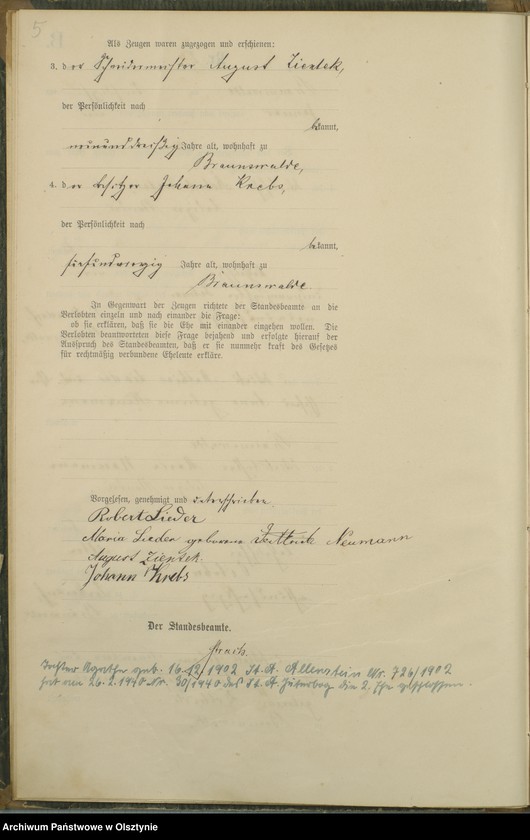 5
Als Zeugen waren zugezogen und erschienen:
3. der Schneidermeister August Zientek,
der Persönlichkeit nach
bekannt,
neununddreißig Jahre alt, wohnhaft zu
Braunswalde,
4. der Besitzer Johann Krebs,
der Persönlichkeit nach
bekannt,
fünfundvierzig Jahre alt, wohnhaft zu
Braunswalde
In Gegenwart der Zeugen richtete der Standesbeamte an die
Verlobten einzeln und nach einander die Frage:
ob sie erklären, daß sie die Ehe mit einander eingehen wollen. Die
Verlobten beantworteten diese Frage bejahend und erfolgte hierauf der
Ausspruch des Standesbeamten, daß er sie nunmehr kraft des Gesetzes
für rechtmäßig verbundene Eheleute erkläre.
Vorgelesen, genehmigt und unterschrieben
Robert Lieder
Maria Lieder geborene Neumann
August Zientek
Johann Krebs
Der Standesbeamte.
Tochter Agathe geb. 16.12.1902 St. A. Allenstein Nr. 726/1902
hat am 26.2.1940 Nr. 30/1940 des St. A. Jüterbog die 2. Ehe geschlossen.
Archiwum Państwowe w Olsztynie